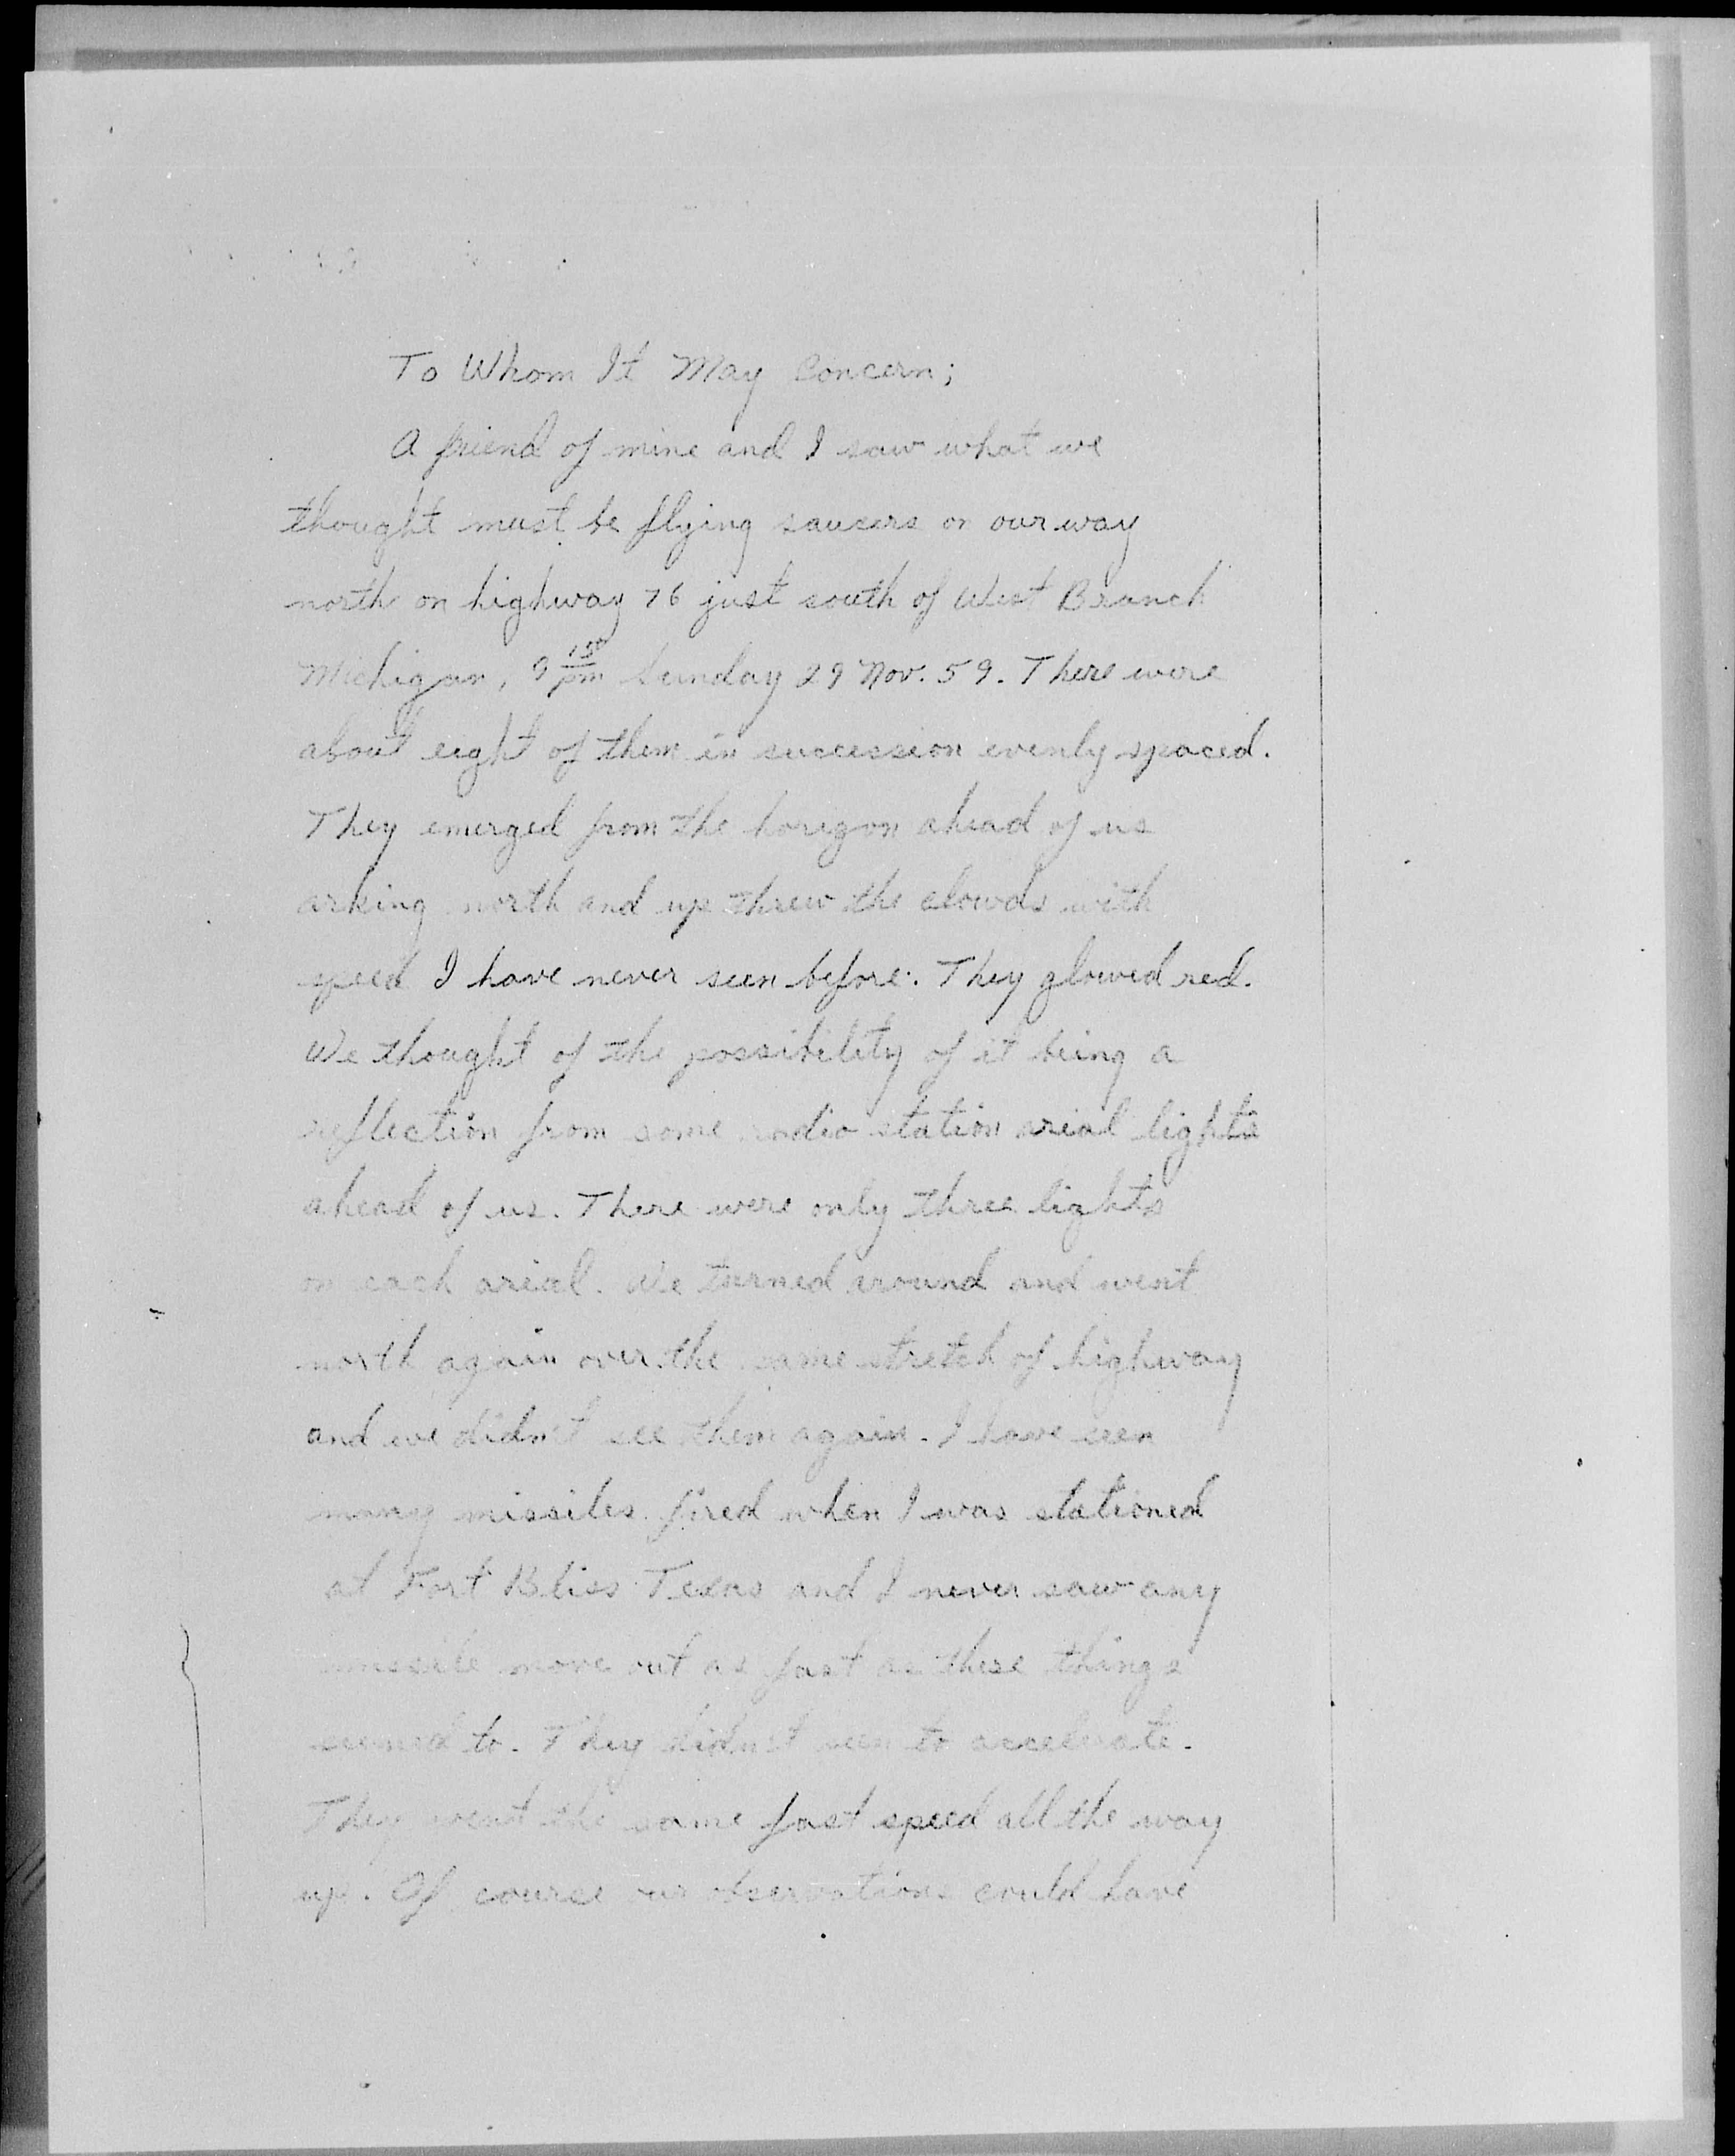 To Whom It May Concern;
A friend of mine and I saw what we
thought must be flying sausers on our way
north on highway 76 just south of West Branch
Michigan, 9 15 pm Sunday 29 Nov. 59. There were
about eight of them in succession evenly spaced.
They emerged from the horizon ahead of us
arking north and up threw the clowds with
speed I have never seen before. They glowed red.
We thought of the possibility of it being a
reflection from some radio station arial lights
ahead of us. There were only three lights
on each arial. We turned around and went
north again over the same stretch of highway
and we didn't see them again. I have seen
many missiles fired when I was stationed
at Fort Bliss Texas and I never saw any
missile move out as fast as these things
seemed to. They didn't seem to accelerate.
They went the same fast speed all the way
up. Of course our observations could have